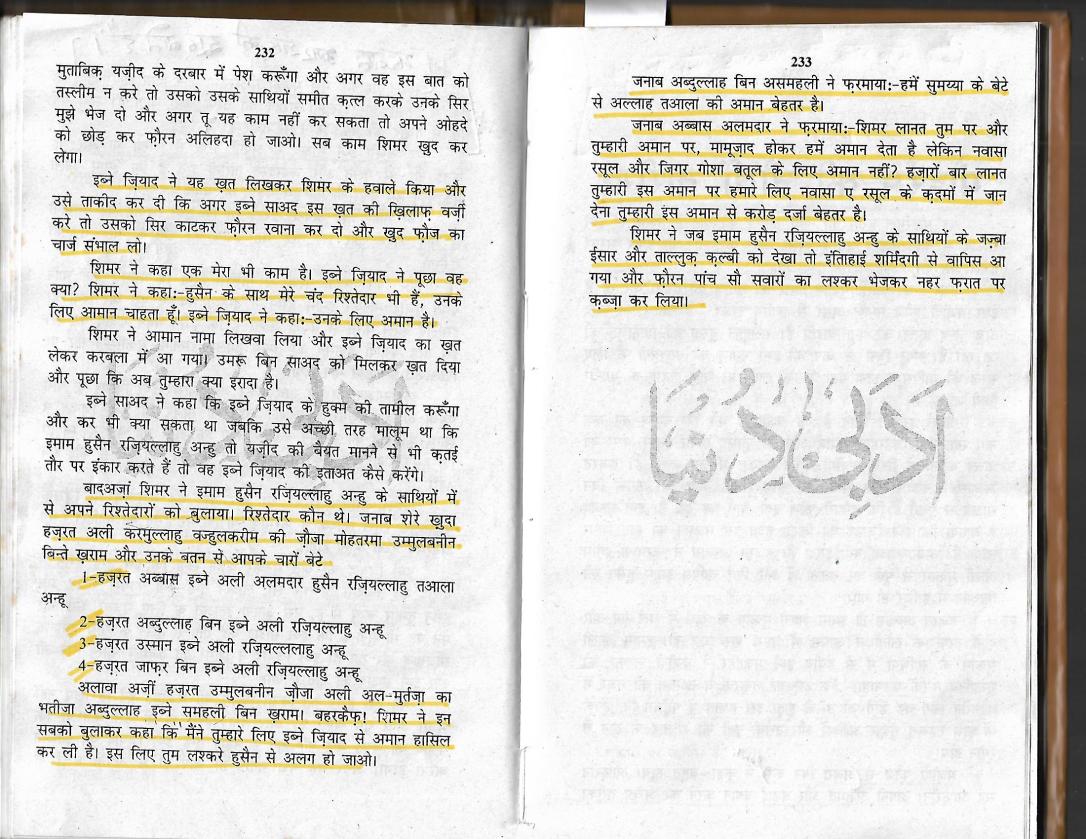 232
मुताबिक़ यज़ीद के दरबार में पेश करूँगा और अगर वह इस बात को
तस्लीम न करे तो उसको उसके साथियों समीत क़त्ल करके उनके सिर
मुझे भेज दो और अगर तू यह काम नहीं कर सकता तो अपने ओहदे
को छोड़ कर फ़ौरन अलिहदा हो जाओ। सब काम शिमर खुद कर
लेगा।
इब्ने ज़ियाद ने यह ख़त लिखकर शिमर के हवाले किया और
उसे ताकीद कर दी कि अगर इब्ने साअद इस ख़त की ख़िलाफ़ वर्ज़ी
करे तो उसको सिर काटकर फ़ौरन रवाना कर दो और खुद फ़ौज का
चार्ज संभाल लो।
शिमर ने कहा एक मेरा भी काम है। इब्ने ज़ियाद ने पूछा वह
क्या? शिमर ने कहा:-हुसैन के साथ मेरे चंद रिश्तेदार भी हैं, उनके
लिए आमान चाहता हूँ। इब्ने ज़ियाद ने कहा:-उनके लिए अमान है।
शिमर ने आमान नामा लिखवा लिया और इब्ने ज़ियाद का ख़त
लेकर करबला में आ गया। उमरू बिन साअद को मिलकर ख़त दिया
और पूछा कि अब तुम्हारा क्या इरादा है।
इब्ने साअद ने कहा कि इब्ने ज़ियाद के हुक्म की तामील करूँगा
और कर भी क्या सकता था जबकि उसे अच्छी तरह मालूम था कि
इमाम हुसैन रज़ियल्लाहु अन्हु तो यज़ीद की बैयत मानने से भी क़तई
तौर पर इंकार करते हैं तो वह इब्ने ज़ियाद की इताअत कैसे करेंगे।
बादअज़ां शिमर ने इमाम हुसैन रज़ियल्लाहु अन्हु के साथियों में
से अपने रिश्तेदारों को बुलाया। रिश्तेदार कौन थे। जनाब शेरे खुदा
हज़रत अली करमुल्लाहु वज्हुलकरीम की ज़ौजा मोहतरमा उम्मुलबनीन
बिन्ते ख़राम और उनके बतन से आपके चारों बेटे
1-हज़रत अब्बास इब्ने अली अलमदार हुसैन रज़ियल्लाहु तआला
अन्हू
2-हज़रत अब्दुल्लाह बिन इब्ने अली रज़ियल्लाहु अन्हू
3-हज़रत उस्मान इब्ने अली रज़ियल्ललाहु अन्हू
4-हज़रत जाफ़र बिन इब्ने अली रज़ियल्लाहु अन्हू
अलावा अज़ीं हज़रत उम्मुलबनीन ज़ौजा अली अल-मुर्तज़ा का
भतीजा अब्दुल्लाह इब्ने समहली बिन ख़राम। बहरकैफ़! शिमर ने इन
सबको बुलाकर कहा कि मैंने तुम्हारे लिए इब्ने ज़ियाद से अमान हासिल
कर ली है। इस लिए तुम लश्करे हुसैन से अलग हो जाओ।
233
जनाब अब्दुल्लाह बिन असमहली ने फ़रमाया:-हमें सुमय्या के बेटे
से अल्लाह तआला की अमान बेहतर है।
जनाब अब्बास अलमदार ने फ़रमाया:-शिमर लानत तुम पर और
तुम्हारी अमान पर, मामूज़ाद होकर हमें अमान देता है लेकिन नवासा
रसूल और जिगर गोशा बतूल के लिए अमान नहीं? हज़ारों बार लानत
तुम्हारी इस अमान पर हमारे लिए नवासा ए रसूल के क़दमों में जान
देना तुम्हारी इस अमान से करोड़ दर्जा बेहतर है।
शिमर ने जब इमाम हुसैन रज़ियल्लाहु अन्हु के साथियों के जज़्बा
ईसार और ताल्लुक क़ल्बी को देखा तो इंतिहाई शर्मिंदगी से वापिस आ
गया और फ़ौरन पांच सौ सवारों का लश्कर भेजकर नहर फ़रात पर
क़ब्ज़ा कर लिया।
ادبی دنیا